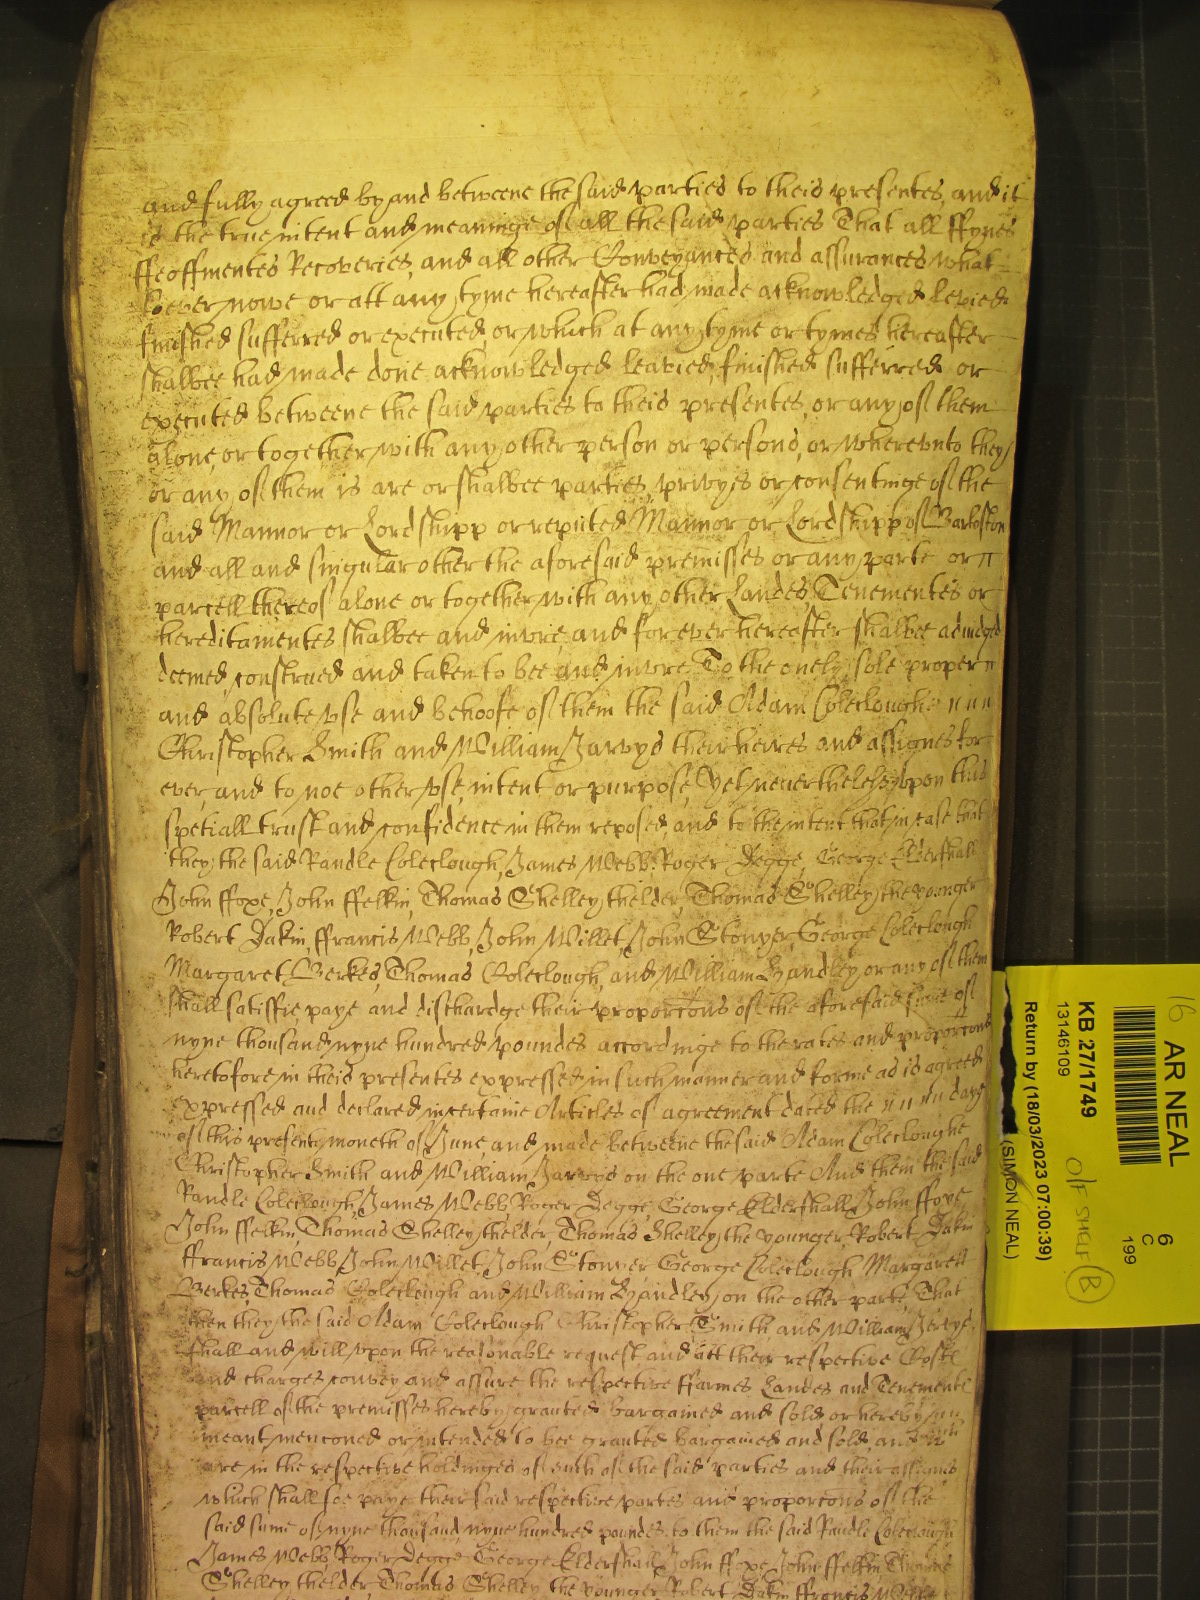 and fully agreed by and betweene the said parties to theis presentes, and it
is the true intent and meaninge of all the said parties That all ffynes
ffeoffmentes Recoveries, and all other Conveyances and assurances what-
soever nowe or att any tyme hereafter had made acknowledged levied
finished sufferred or executed, or which at any tyme or tymes hereafter
shalbee had made done acknowledged leavied, finished sufferred or
executed betweene the said parties to theis presentes, or any of them
alone, or together with any other person or persons, or wherevnto they
or any of them is are or shalbee parties, privyes or consentinge of the
said Mannor or Lordshipp or reputed Mannor or Lordshipp of Barlaston
and all and singular other the aforesaid premisses or any parte or
parcell thereof alone or together with any other Landes, Tenementes or
hereditamentes shalbee and invre, and for ever hereafter shalbee adiudged
deemed, construed and taken to bee and invre To the onely sole proper
and absolute vse and behoofe of them the said Adam Coleclough
Christopher Smith and William Jarvys their heires and assignes for
ever, and to noe other vse, intent or purpose, Yet neuerthelesse vpon this
speciall trust and confidence in them reposed, and to the intent that in case that
they the said Randle Coleclough, James Webb, Roger Degge, George Eldershall
John ffoxe, John ffelkin, Thomas Shelley thelder, Thomas Shelley the younger
Robert Dakin, ffrancis Webb, John Willet, John Stonyer, George Coleclough
Margaret Berkes, Thomas Coleclough, and William Handley, or any of them
shall satisfie, paye and dischardge their proporcons of the aforesaid sume of
nyne thousand nyne hundred poundes accordinge to the rates and proporcons
heretofore in theis presentes expressed, in such manner and forme as is agreed
expressed and declared in certaine Articles of agreement dated the daye
of this present moneth of June, and made betweene the said Adam Cole­cloughe
Christopher Smith and William Jarvys on the one parte And them the said
Randle Coleclough, James Webb Roger Degge George Eldershall, John ffoxe
John ffelkin, Thomas Shelley thelder, Thomas Shelley the younger, Robert Dakin
ffrancis Webb, John Willet, John Stonyer George Coleclough Margarett
Berkes, Thomas Coleclough and William Handley, on the other parte, That
then they the said Adam Coleclough Christopher Smith and William Jervys
shall and will, vpon the reasonable request and att their respective Costes
and charges convey and assure the respective ffarmes Landes and Tenementes
parcell of the premisses hereby granted bargained and sold or hereby
meant, mencioned or intended to bee granted bargained and sold, and
are in the respective holdinges of such of the said parties and their assignes
which shall soe paye their said respective partes and proporcons of the
said sume of nyne thousand, nyne hundred poundes to them the said Randle Coleclough
James Webb Roger Degge George Eldershall, John ffoxe, John ffelkin Thomas
Shelley thelder Thomas Shelley the younger Robert Dakin ffrancis Webb
16 AR NEAL
6
C
199
KB 27/1749
13146109
Return by (18/03/2023 07:00:39)
(SIMON NEAL)
O/F SHELF
B